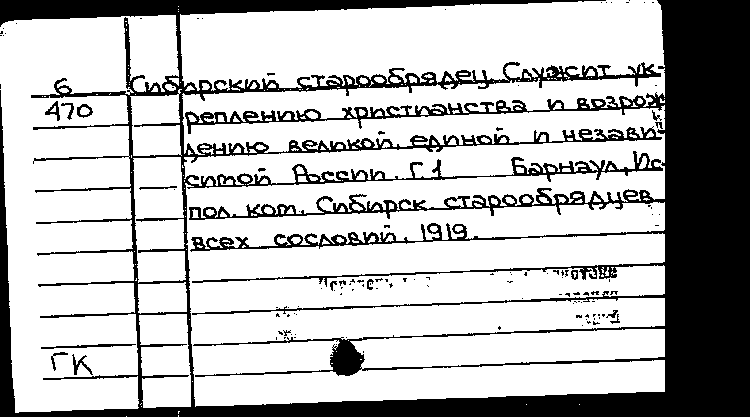 6 Сибирский старообрядец. Служит ук-
470 реплению христианства и возрож
дению великой, единой и незави-
симой России. Г.1 Барнаул, Ис-
пол. ком. Сибирск. старообрядцев
всех сословий, 1919.
ГК